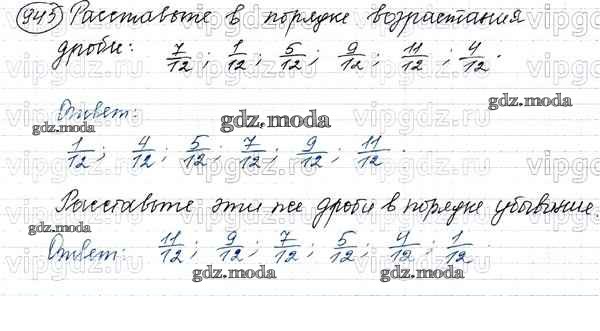 943 Расставьте в порядке возрастания
дроби: 7/12; 1/12; 5/12; 9/12; 11/12; 4/12.
Ответ:
1/12; 4/12; 5/12; 7/12; 9/12; 11/12.
Расставьте эти же дроби в порядке убывание.
Ответ: 11/12; 9/12; 7/12; 5/12; 4/12; 1/12.
vipgdz.ru
gdz.moda